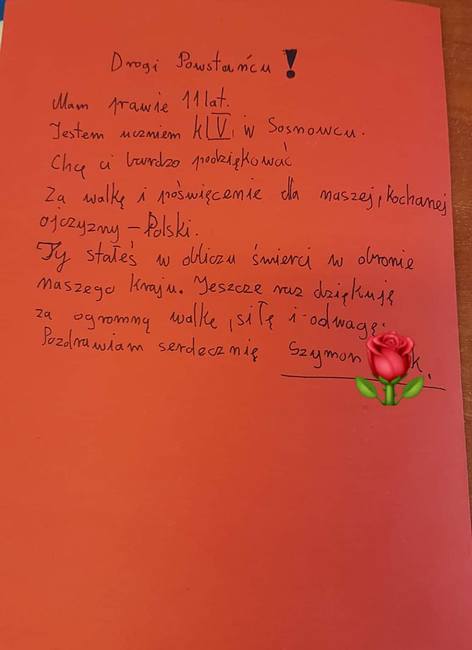 Drogi Powstańcu!
Mam prawie 11 lat.
Jestem uczniem kl V, w Sosnowcu.
Chcę ci bardzo podziękować
Za walkę i poświęcenie dla naszej, kochanej
ojczyzny - Polski.
Ty stałeś w obliczu śmierci w obronie
naszego kraju. Jeszcze raz dziękuję
za ogromną walkę, siłę i odwagę.
Pozdrawiam serdecznię Szymon